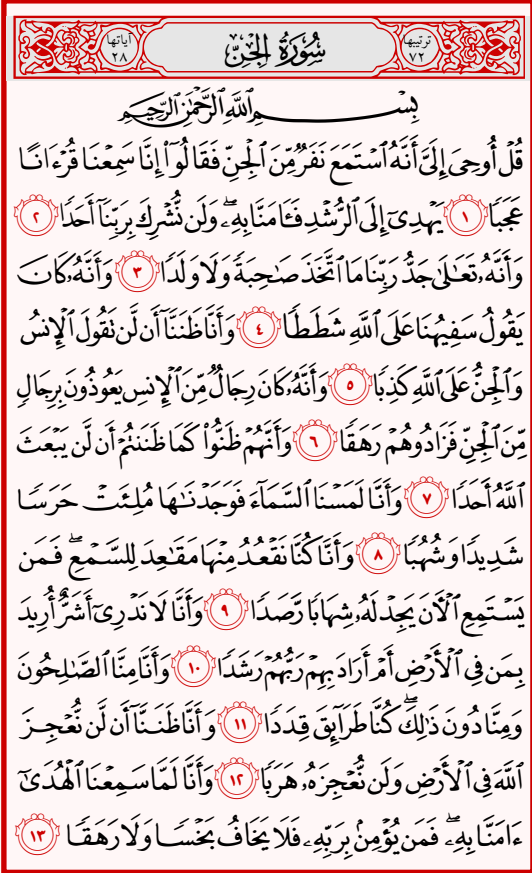 ترتيبها ٧٢ سُورَةُ الجِنِّ آياتها ٢٨
بِسْمِ اللَّهِ الرَّحْمَٰنِ الرَّحِيمِ
قُلْ أُوحِيَ إِلَيَّ أَنَّهُ ٱسْتَمَعَ نَفَرٌ مِّنَ ٱلْجِنِّ فَقَالُوٓا۟ إِنَّا سَمِعْنَا قُرْءَانًا
عَجَبًا ١ يَهْدِىٓ إِلَى ٱلرُّشْدِ فَـَٔامَنَّا بِهِۦ ۖ وَلَن نُّشْرِكَ بِرَبِّنَآ أَحَدًا ٢
وَأَنَّهُۥ تَعَـٰلَىٰ جَدُّ رَبِّنَا مَا ٱتَّخَذَ صَـٰحِبَةً وَلَا وَلَدًا ٣ وَأَنَّهُۥ كَانَ
يَقُولُ سَفِيهُنَا عَلَى ٱللَّهِ شَطَطًا ٤ وَأَنَّا ظَنَنَّآ أَن لَّن تَقُولَ ٱلْإِنسُ
وَٱلْجِنُّ عَلَى ٱللَّهِ كَذِبًا ٥ وَأَنَّهُۥ كَانَ رِجَالٌ مِّنَ ٱلْإِنسِ يَعُوذُونَ بِرِجَالٍ
مِّنَ ٱلْجِنِّ فَزَادُوهُمْ رَهَقًا ٦ وَأَنَّهُمْ ظَنُّوا۟ كَمَا ظَنَنتُمْ أَن لَّن يَبْعَثَ
ٱللَّهُ أَحَدًا ٧ وَأَنَّا لَمَسْنَا ٱلسَّمَآءَ فَوَجَدْنَـٰهَا مُلِئَتْ حَرَسًا
شَدِيدًا وَشُهُبًا ٨ وَأَنَّا كُنَّا نَقْعُدُ مِنْهَا مَقَـٰعِدَ لِلسَّمْعِ ۖ فَمَن
يَسْتَمِعِ ٱلْـَٔانَ يَجِدْ لَهُۥ شِهَابًا رَّصَدًا ٩ وَأَنَّا لَا نَدْرِىٓ أَشَرٌّ أُرِيدَ
بِمَن فِى ٱلْأَرْضِ أَمْ أَرَادَ بِهِمْ رَبُّهُمْ رَشَدًا ١٠ وَأَنَّا مِنَّا ٱلصَّـٰلِحُونَ
وَمِنَّا دُونَ ذَٰلِكَ ۖ كُنَّا طَرَآئِقَ قِدَدًا ١١ وَأَنَّا ظَنَنَّآ أَن لَّن نُّعْجِزَ
ٱللَّهَ فِى ٱلْأَرْضِ وَلَن نُّعْجِزَهُۥ هَرَبًا ١٢ وَأَنَّا لَمَّا سَمِعْنَا ٱلْهُدَىٰٓ
ءَامَنَّا بِهِۦ ۖ فَمَن يُؤْمِنۢ بِرَبِّهِۦ فَلَا يَخَافُ بَخْسًا وَلَا رَهَقًا ١٣